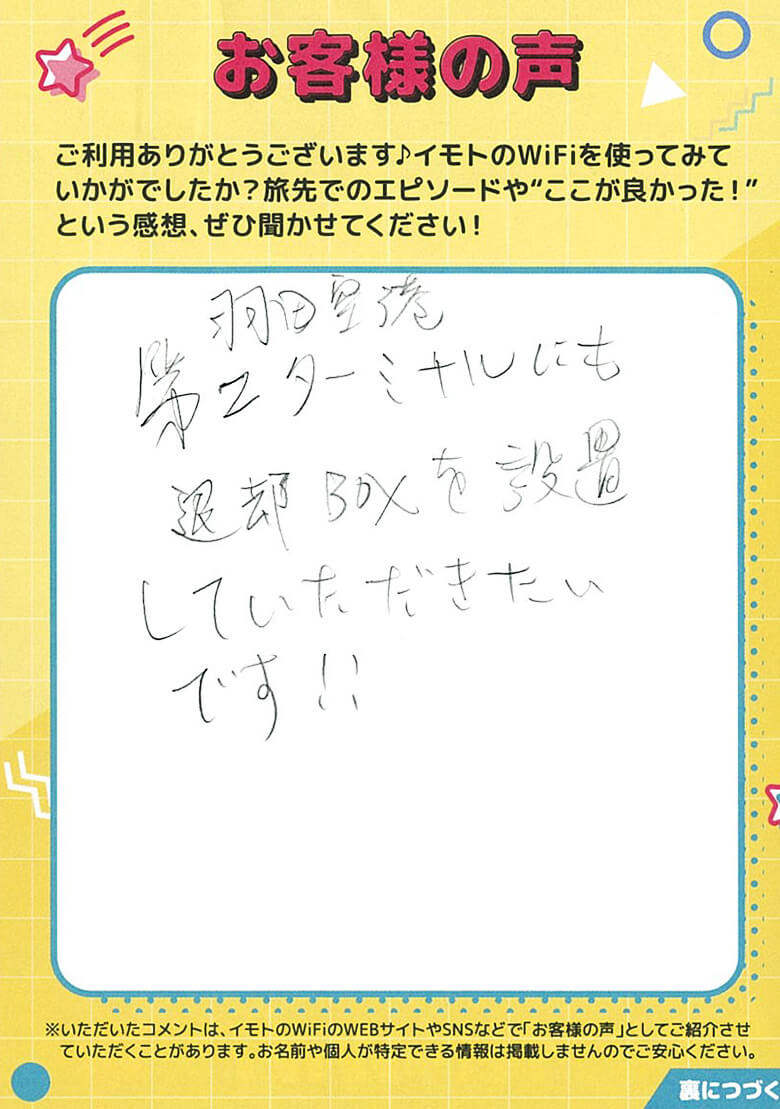 お客様の声
ご利用ありがとうございます♪イモトのWiFiを使ってみて
いかがでしたか?旅先でのエピソードや“ここが良かった!”
という感想、ぜひ聞かせてください!
羽田空港
第2ターミナルにも
返却BOXを設置
していただきたい
です!!
※いただいたコメントは、イモトのWiFiのWEBサイトやSNSなどで「お客様の声」としてご紹介させ
ていただくことがあります。お名前や個人が特定できる情報は掲載しませんのでご安心ください。
裏につづく